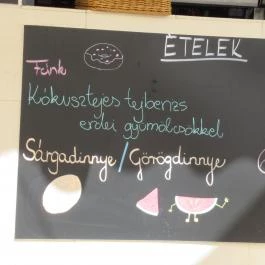 ÉTELEK
Fánk
Kókusztejes tejberizs
erdei gyümölcsökkel
Sárgadinnye / Görögdinnye